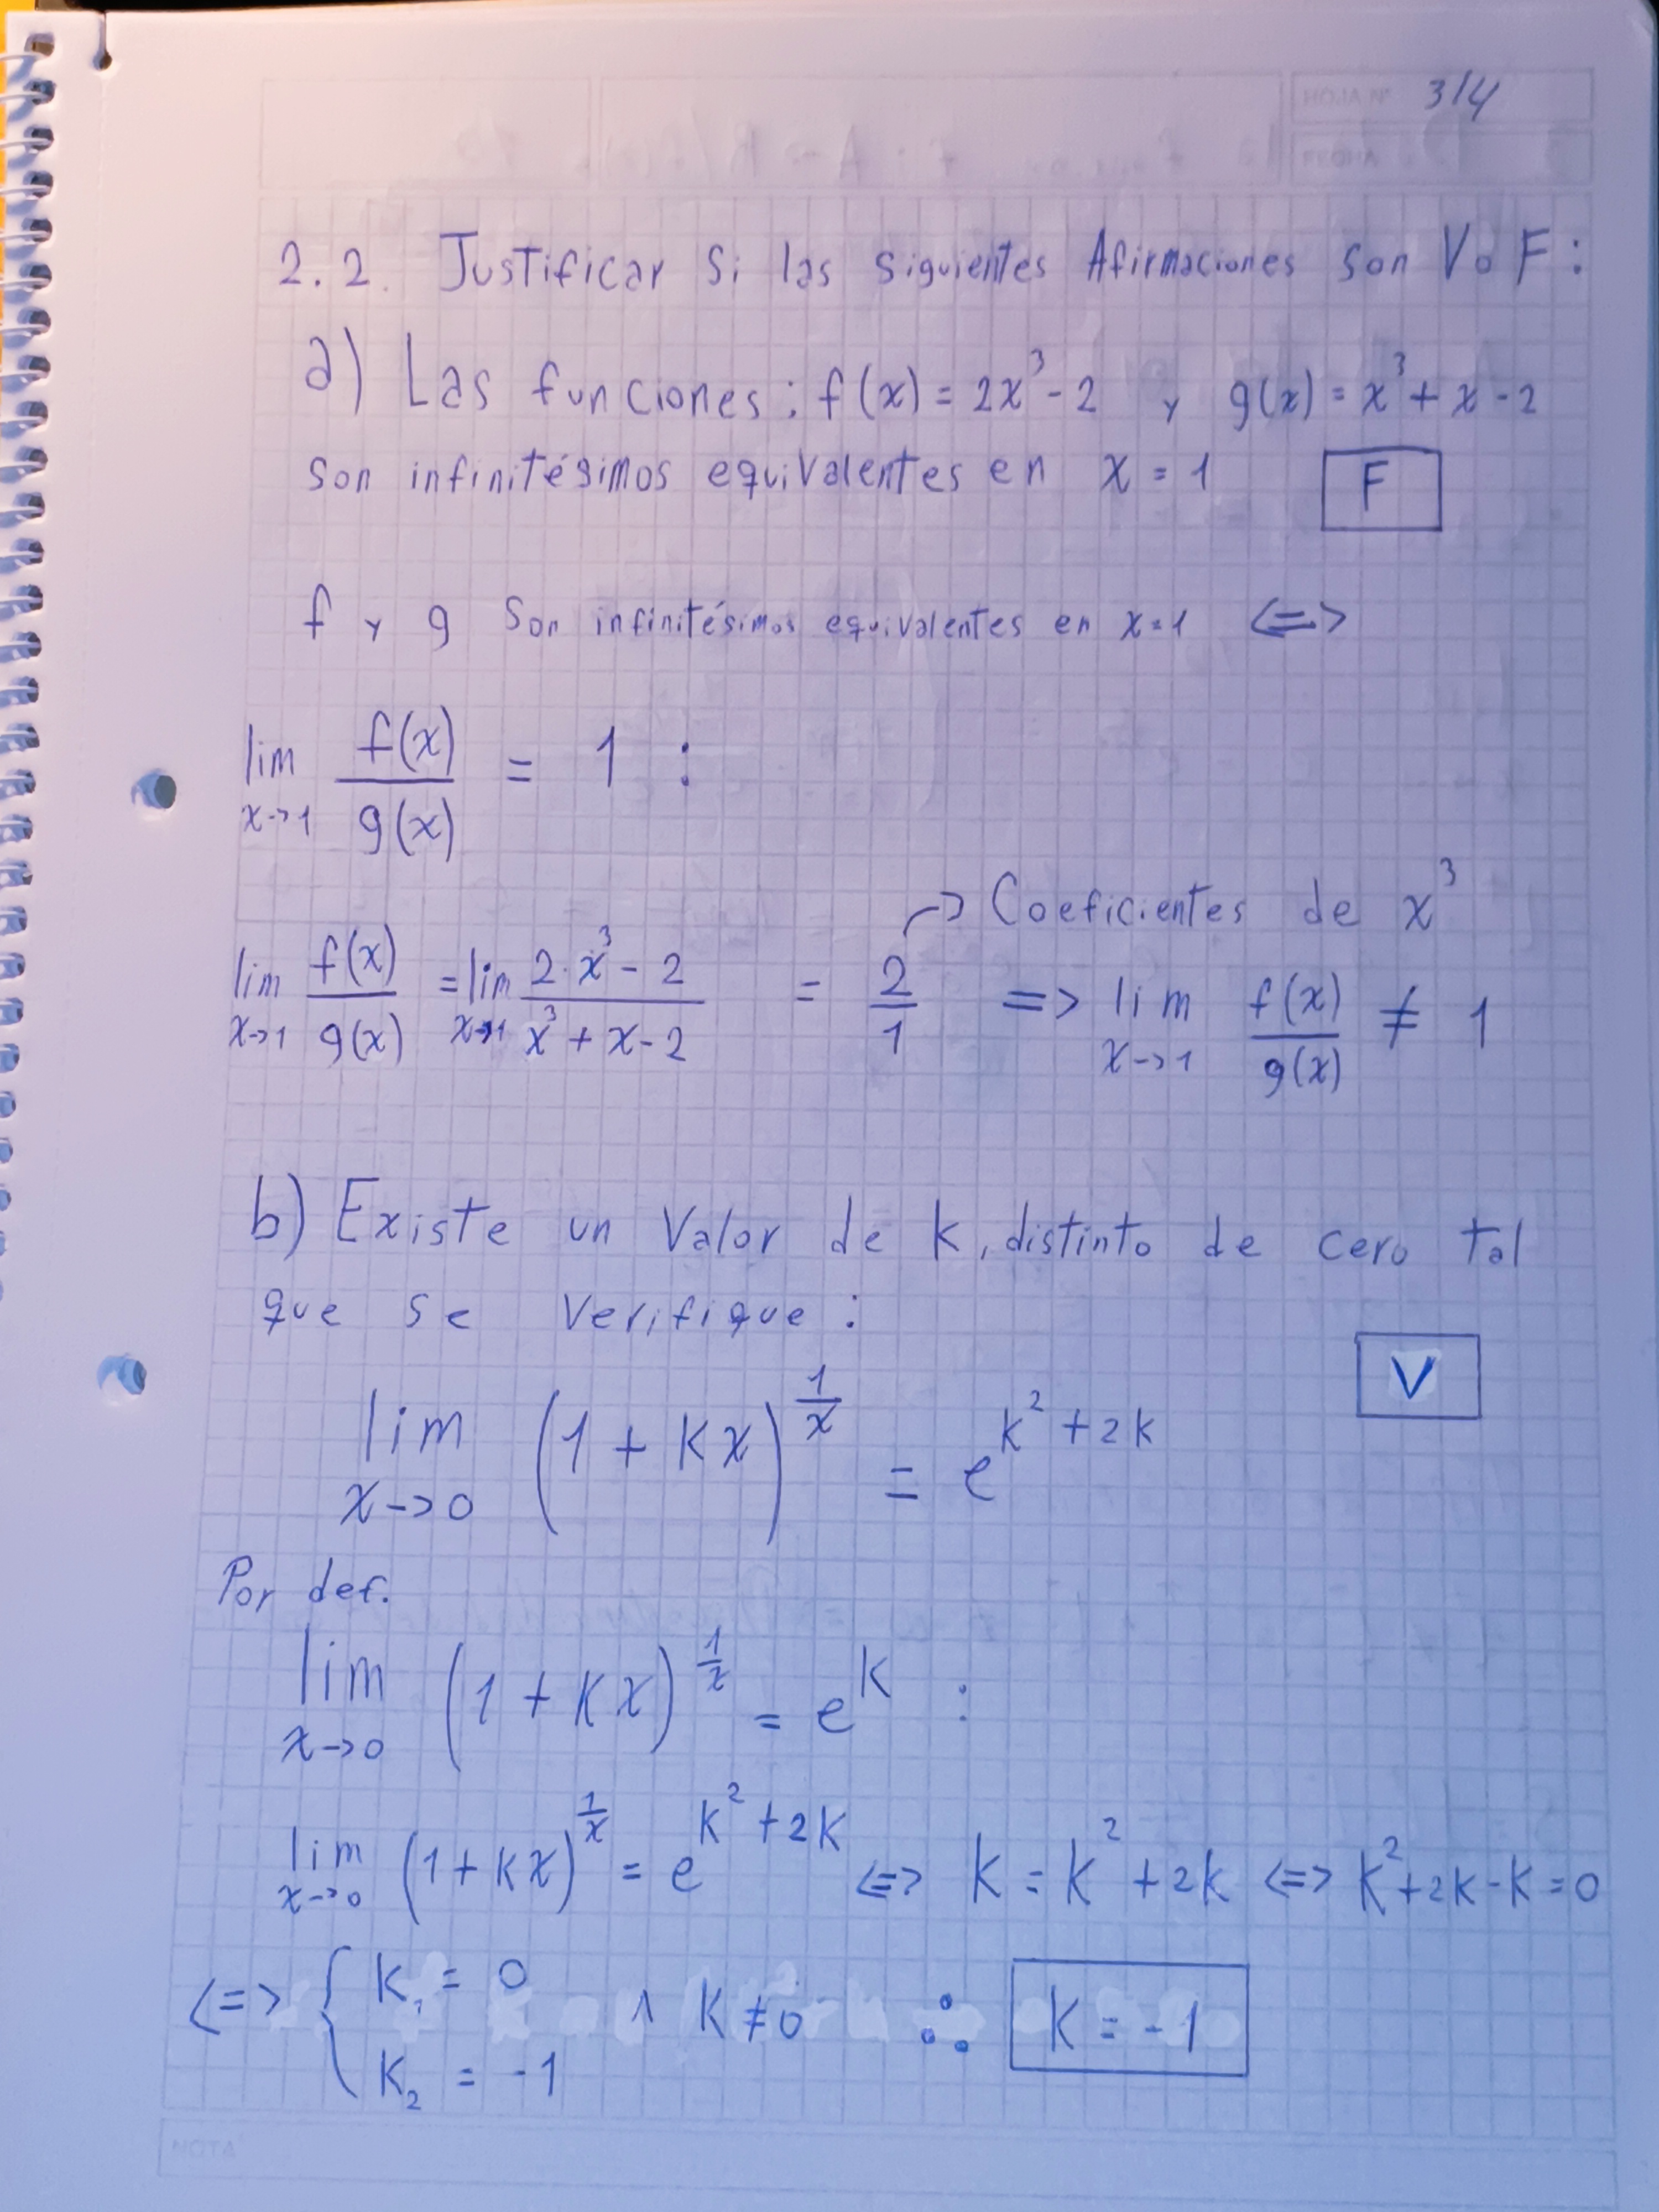 HOJA Nº 3/4
FECHA
2.2. Justificar si las siguientes Afirmaciones son V o F:
a) Las funciones: f(x) = 2x³ - 2 y g(x) = x³ + x - 2
son infinitésimos equivalentes en x = 1 F
f y g son infinitésimos equivalentes en x = 1 <=>
lim x->1 f(x)/g(x) = 1 :
-> Coeficientes de x³
lim x->1 f(x)/g(x) = lim x->1 (2·x³ - 2)/(x³ + x - 2) = 2/1 => lim x->1 f(x)/g(x) ≠ 1
b) Existe un Valor de k, distinto de cero tal
que se Verifique :
V
lim x->0 (1 + kx)^(1/x) = e^(k² + 2k)
Por def.
lim x->0 (1 + kx)^(1/x) = e^k :
lim x->0 (1 + kx)^(1/x) = e^(k² + 2k) <=> k = k² + 2k <=> k² + 2k - k = 0
<=> { k₁ = 0
k₂ = -1 ∧ k ≠ 0 ∴ k = -1
NOTA